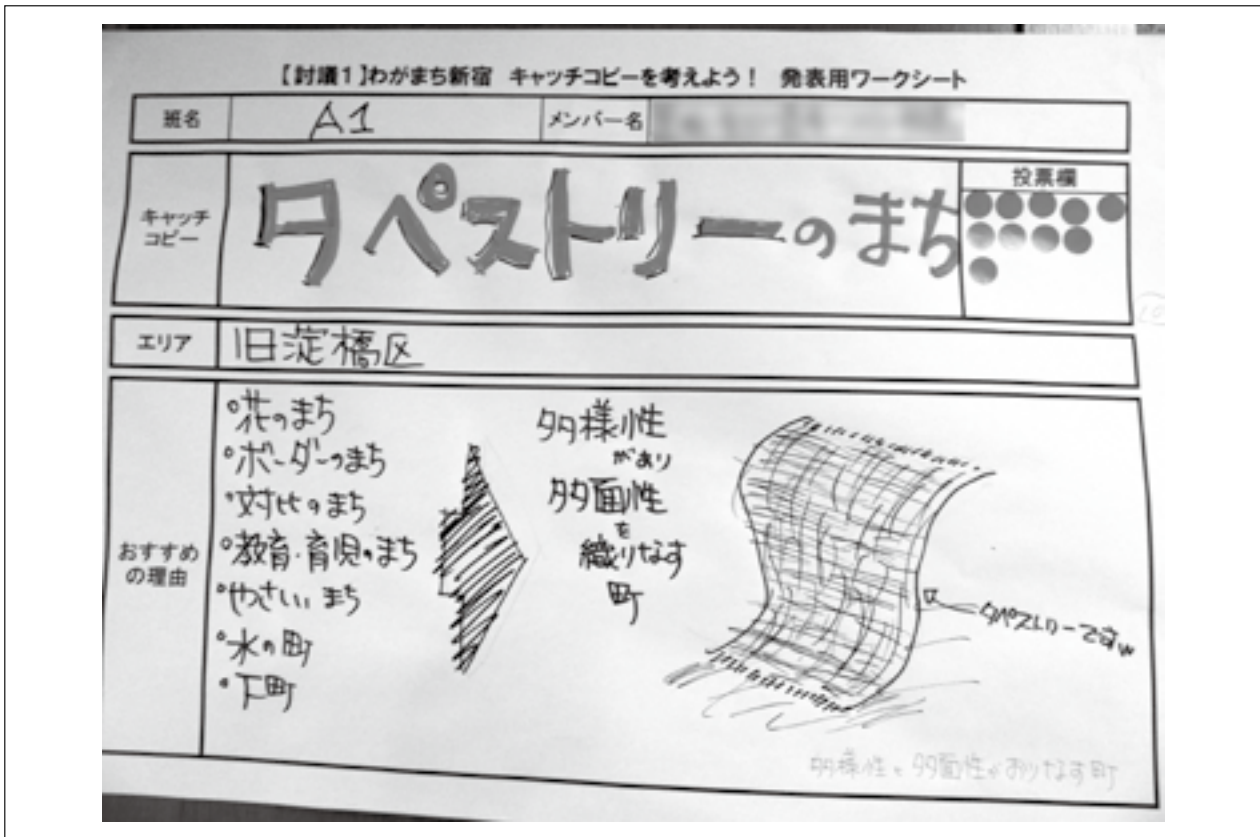 【討議1】わがまち新宿 キャッチコピーを考えよう! 発表用ワークシート
班名 A1 メンバー名
キャッチコピー
タペストリーのまち
投票欄
エリア 旧淀橋区
おすすめの理由
°花のまち
°ボーダーのまち
°対比のまち
°教育・育児のまち
°やさしいまち
°水の町
°下町
多様性
があり
多面性
を
織りなす
町
タペストリーですw
多様性と多面性がおりなす町
10